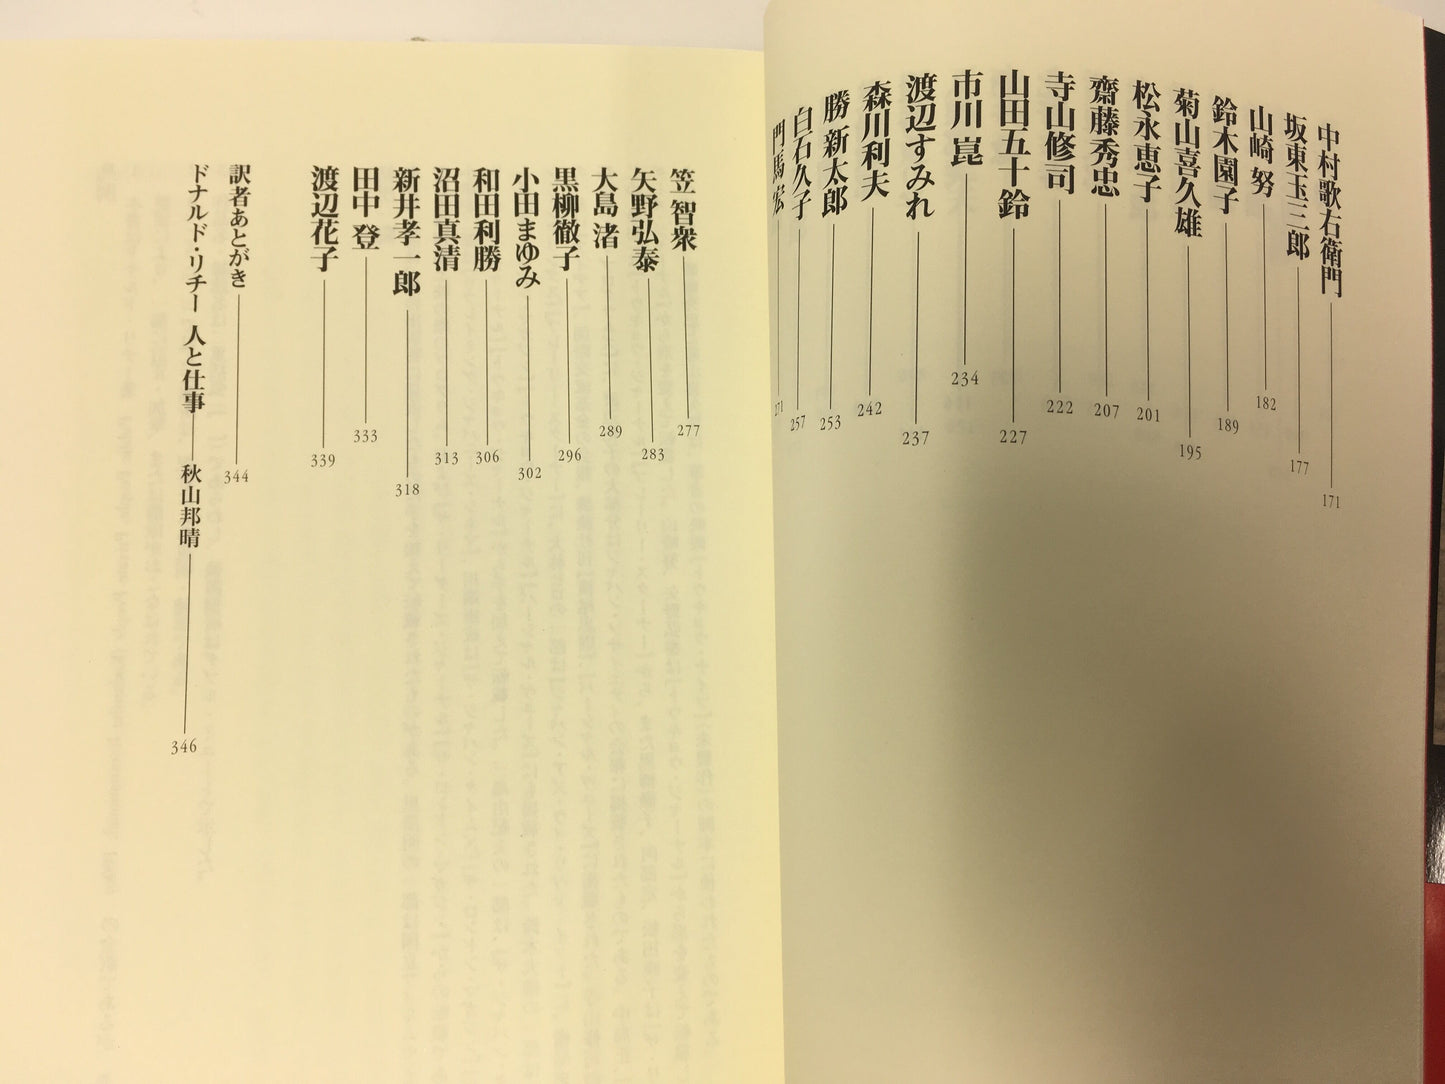 中村歌右衛門 171
坂東玉三郎 177
山崎 努 182
鈴木園子 189
菊山喜久雄 195
松永恵子 201
齋藤秀忠 207
寺山修司 222
山田五十鈴 227
市川 崑 234
渡辺すみれ 237
森川利夫 242
勝 新太郎 253
白石久子 257
門馬宏 271
笠 智衆 277
矢野弘泰 283
大島 渚 289
黒柳徹子 296
小田まゆみ 302
和田利勝 306
沼田真清 313
新井孝一郎 318
田中 登 333
渡辺花子 339
訳者あとがき 344
ドナルド・リチー 人と仕事 秋山邦晴 346